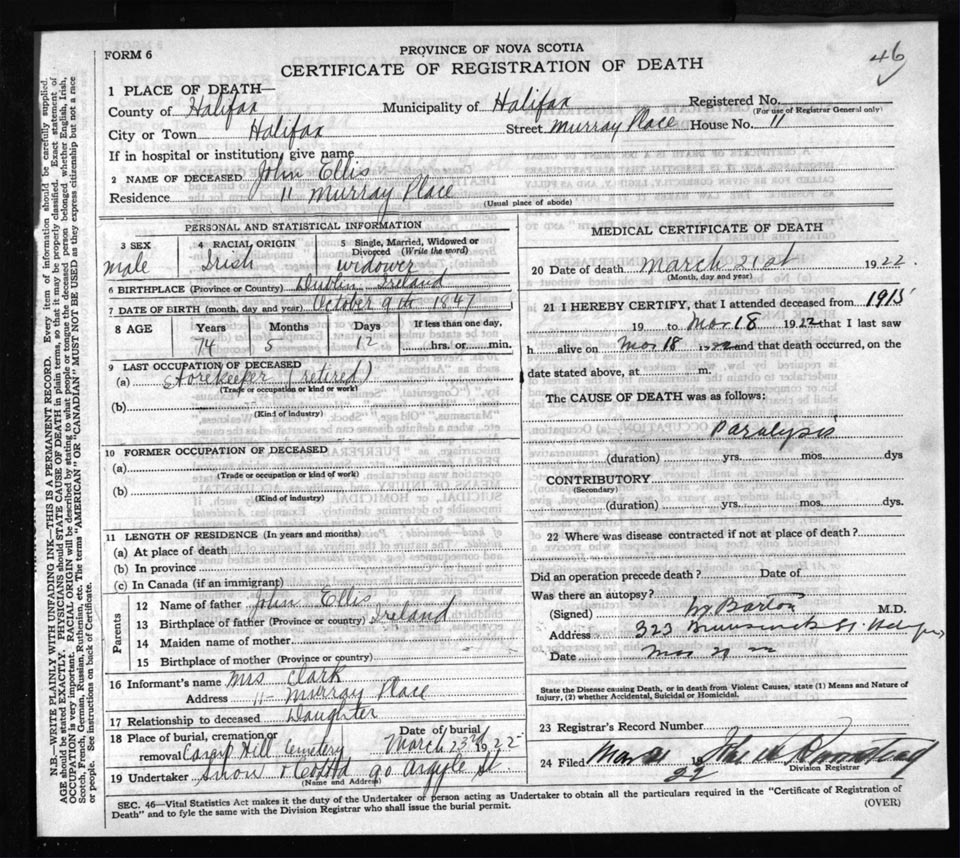 46
FORM 6
PROVINCE OF NOVA SCOTIA
CERTIFICATE OF REGISTRATION OF DEATH
1 PLACE OF DEATH—
County of Halifax Municipality of Halifax Registered No.
(For use of Registrar General only)
City or Town Halifax Street Murray Place House No. 11
If in hospital or institution, give name
2 NAME OF DECEASED John Ellis
Residence 11 Murray Place
(Usual place of abode)
PERSONAL AND STATISTICAL INFORMATION
3 SEX 4 RACIAL ORIGIN 5 Single, Married, Widowed or
Divorced (Write the word)
Male Irish widower
6 BIRTHPLACE (Province or Country) Dublin Ireland
7 DATE OF BIRTH (month, day and year) October 9th 1847
8 AGE Years Months Days If less than one day,
74 5 12 hrs. or min.
9 LAST OCCUPATION OF DECEASED
(a) Storekeeper (retired)
(Trade or occupation or kind of work)
(b)
(Kind of industry)
10 FORMER OCCUPATION OF DECEASED
(a)
(Trade or occupation or kind of work)
(b)
(Kind of industry)
11 LENGTH OF RESIDENCE (In years and months)
(a) At place of death
(b) In province
(c) In Canada (if an immigrant)
Parents
12 Name of father John Ellis
13 Birthplace of father (Province or country) Ireland
14 Maiden name of mother
15 Birthplace of mother (Province or country)
16 Informant's name Mrs Clark
Address 11 Murray Place
17 Relationship to deceased Daughter
18 Place of burial, cremation or Date of burial
removal Camp Hill Cemetery March 23rd 1922
19 Undertaker Snow & Co Ltd 90 Argyle St
(Name and Address)
MEDICAL CERTIFICATE OF DEATH
20 Date of death March 21st 1922
(Month, day and year)
21 I HEREBY CERTIFY, that I attended deceased from 1915
19 to Mar 18 1922 that I last saw
h alive on Mar 18 1922 and that death occurred, on the
date stated above, at m.
The CAUSE OF DEATH was as follows:
Paralysis
(duration) yrs. mos. dys
CONTRIBUTORY
(Secondary)
(duration) yrs. mos. dys.
22 Where was disease contracted if not at place of death?
Did an operation precede death? Date of
Was there an autopsy?
(Signed) Barton M.D.
Address 323 Brunswick St. Halifax
Date Mar 21 22
State the Disease causing Death, or in death from Violent Causes, state (1) Means and Nature of
Injury, (2) whether Accidental, Suicidal or Homicidal.
23 Registrar's Record Number
24 Filed 19 22 John
Division Registrar
SEC. 46—Vital Statistics Act makes it the duty of the Undertaker or person acting as Undertaker to obtain all the particulars required in the "Certificate of Registration of
Death" and to fyle the same with the Division Registrar who shall issue the burial permit. (OVER)
N.B.—WRITE PLAINLY WITH UNFADING INK—THIS IS A PERMANENT RECORD. Every item of information should be carefully supplied.
AGE should be stated EXACTLY. PHYSICIANS should STATE CAUSE OF DEATH in plain terms, so that it may be properly classified. Exact statement of
OCCUPATION is very important. RACIAL ORIGIN will be described by stating to what people or tongue the deceased person belonged, whether English, Irish,
Scotch, French, German, Russian, Ruthenian, etc. The terms "AMERICAN" OR "CANADIAN" MUST NOT BE USED as they express citizenship but not a race
or people. See instructions on back of Certificate.